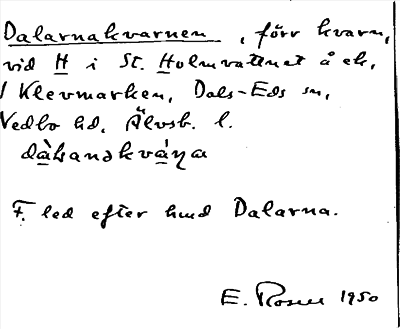 Dalarnakvarnen, förr kvarn,
vid H i St. Holmvattnet å ek,
1 Klevmarken, Dals-Eds sn,
Vedbo hd, Älvsb. l.
F. led efter hmd Dalarna.
E. Rosén 1950